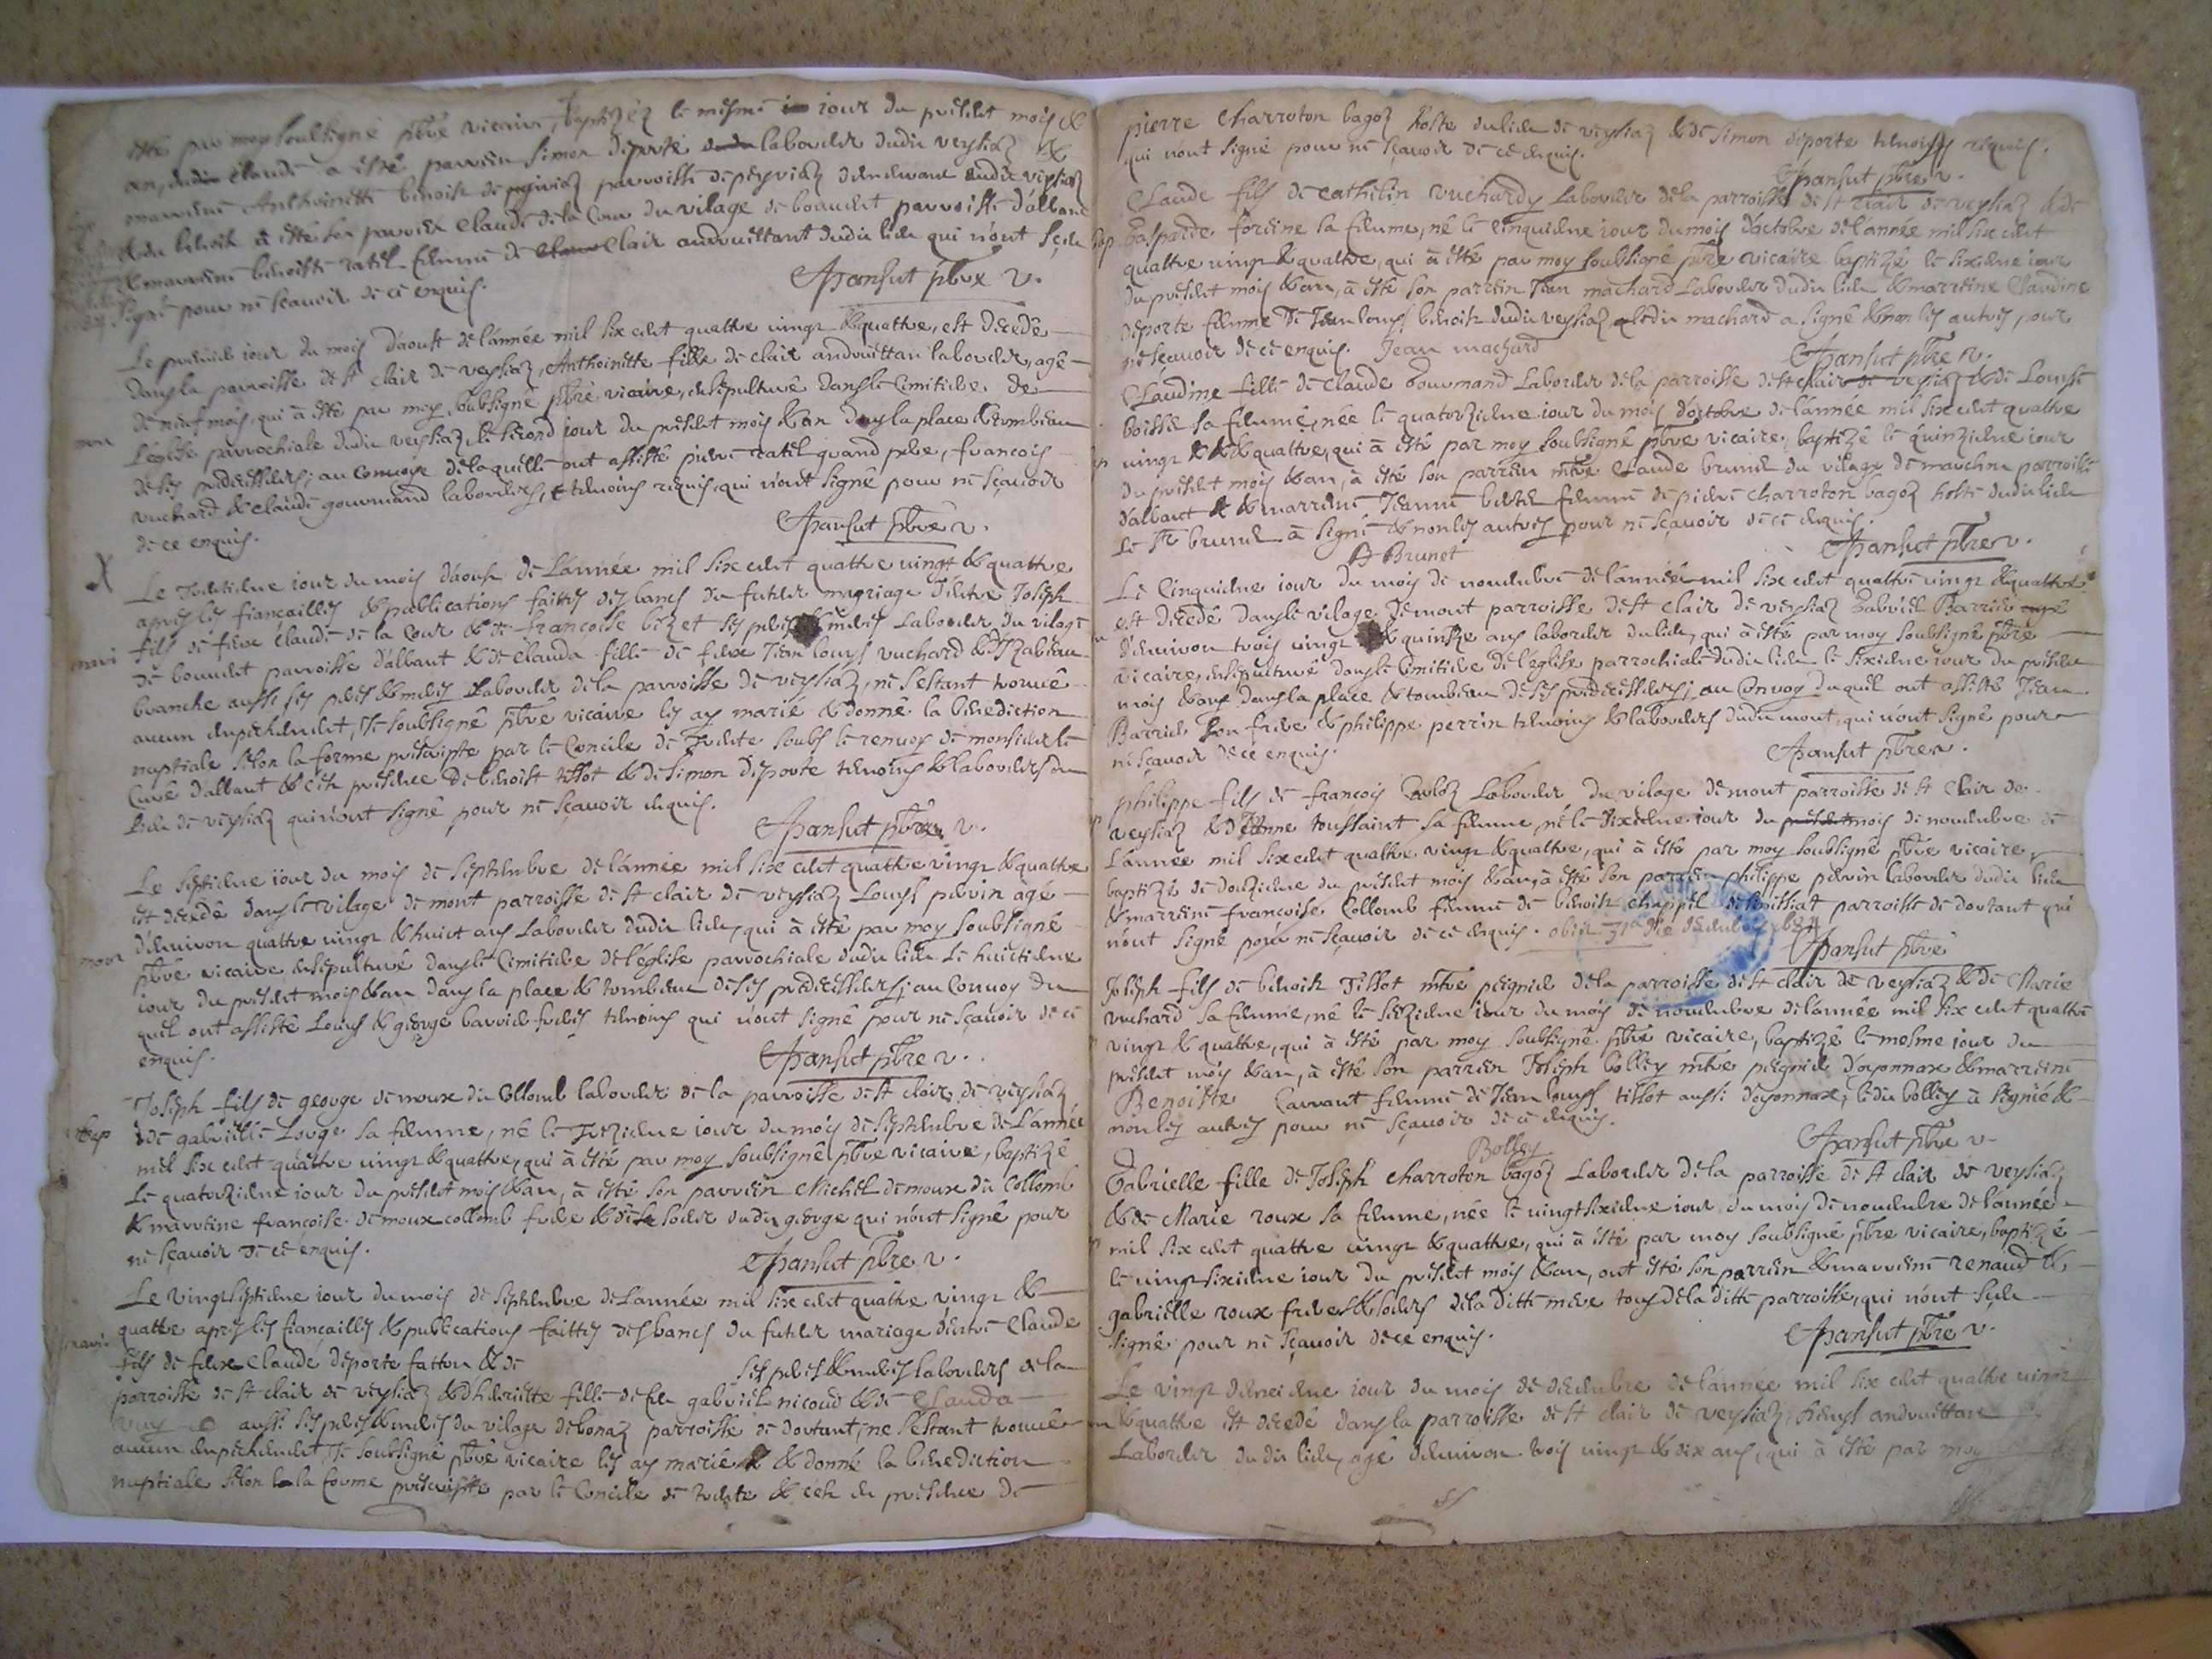 esté par moy soubsigné pbre vicaire, baptizéz le mesme iour du présent mois &
an, dudit claude a esté parrein simon déporte laborder dudit veysiaz &
marreine Anthoinette benoist de parroisse de peysviaz demeurant audit veysiaz
& du benoist à esté son parrein claude de la Cour du vilage de bouudet parroisse d'allant
& marreine benoiste ratel femme de clair andruettant dudit lieu qui n'ont sceu
signé pour ne sçavoir de ce enquis. Pansut pbre v.
Le premier iour du mois d'aoust de l'année mil six cent quattre vingt & quattre, est decedé
dans la parroisse de st clair de veysiaz, Anthoinette fille de clair andruettan laborder, agé
de neuf mois, qui à esté par moy soubsigné pbre vicaire, ensepulturé dans le Cimitiere de
mort L'eglise parrochiale dudit veysiaz, le second iour du présent mois & an dans la place & tombeau
de ses predecesseurs, au Convoye de laquelle ont assisté pierre ratel grand pere, francois
vuchard & claude gourmand laborders, temoins requis, qui n'ont signé pour ne sçavoir
de ce enquis. Pansut pbre v.
X Le Treizieme iour du mois d'aoust de L'année mil six cent quattre vingt & quattre
après les fiançailles & publications faittes des bancs du futur mariage d'entre Joseph
mari fils de feux claude de la Cour & de francoise bizet ses peres & meres Laborder du vilage
de bouudet parroisse d'allant & de clauda fille de feux Jean louys vuchard & d'Yzabeau
branche aussi ses peres & meres laborder de la parroisse de veysiaz, ne s'estant trouvé
aucun empeschement, Je soubsigné pbre vicaire les ay marié & donné la benediction
nuptiale selon la forme prescripte par le Concile de Trente soubs le renvoy de monsieur le
Curé d'allant & c'en présence de benoist tissot & de simon déporte temoins & laborders du
lieu de veysiaz qui n'ont signé pour ne sçavoir enquis. Pansut pbre v.
Le septieme iour du mois de septembre de l'année mil six cent quattre vingt & quattre
est decedé dans le vilage de mont parroisse de st clair de veysiaz Louys pervin agé
d'environ quattre vingt & huict ans Laborder dudit lieu, qui à esté par moy soubsigné
mort pbre vicaire ensepulturé dans le Cimitiere de l'église parrochiale dudit lieu le huictieme
iour du présent mois & an dans la place & tombeau de ses predecesseurs, au Convoy du
quel ont assisté Louys & george barrid freres temoins qui n'ont signé pour ne sçavoir de ce
enquis. Pansut pbre v.
Joseph fils de george demoux dit Collomb laborder de la parroisse de st clair de veysiaz
bap & de gabrielle Louge sa femme, né le Treizieme iour du mois de septembre de L'année
mil six cent quattre vingt & quattre, qui à esté par moy soubsigné pbre vicaire, baptizé
Le quatorzieme iour du présent mois & an, à esté son parrein Michel demoux dit Collomb
& marreine françoise demoux collomb frere & soeur dudit george qui n'ont signé pour
ne sçavoir de ce enquis. Pansut pbre v.
Le vingt septieme iour du mois de septembre de L'année mil six cent quattre vingt &
quattre après les fiançailles & publications faittes des bancs du futur mariage d'entre Claude
mari fils de feux claude déporte fatton & de ses peres & meres laborders de la
parroisse de st clair de veysiaz & d'henriette fille de feu gabriel nicoud & de Clauda
aussi ses peres & meres du vilage de bonaz parroisse de dortant, ne s'estant trouvé
aucun empeschement Je soubsigné pbre vicaire les ay marié & donné la benediction
nuptiale selon la forme prescripte par le Concile de trente & c'en en présence de
pierre Charroton bagoz hoste dulieu de veysiaz & de simon déporte temoins requis.
qui n'ont signé pour ne sçavoir de ce enquis. Pansut pbre v.
Claude fils de Cathelin Vuchardy Laborder de la parroisse de st clair de veysiaz & de
bap Gasparde foreine sa femme, né le cinquieme iour du mois d'octobre de l'année mil six cent
quattre vingt & quattre, qui à esté par moy soubsigné pbre vicaire baptizé le sixieme iour
du présent mois & an, à esté son parrein Jean machard Laborder dudit lieu & marreine Claudine
déporte femme de Jean louys benoist dudit veysiaz, ledit machard a signé & non les autres pour
ne sçavoir de ce enquis. Jean machard Pansut pbre v.
Claudine fille de Claude Gourmand Laborder de la parroisse de st clair de veysiaz & de Louyse
boisse sa femme, née le quatorzieme iour du mois d'octobre de l'année mil six cent quattre
vingt & quattre, qui à esté par moy soubsigné pbre vicaire, baptizé le quinzieme iour
du présent mois & an, à esté son parrein mtre Claude brunet du vilage de marchon parroisse
d'allant & marreine Jeanne femme de pierre Charroton bagoz hoste dudit lieu
Le Sr brunet à signé & non les autres pour ne sçavoir de ce enquis.
Brunet Pansut pbre v.
Le Cinquieme iour du mois de nouembre de l'année mil six cent quattre vingt & quattre
est decedé dans le vilage de mont parroisse de st clair de veysiaz Gabriel Barrid agé
d'environ trois vingt & quinze ans laborder dulieu, qui à esté par moy soubsigné pbre
vicaire, ensepulturé dans le Cimitiere de l'église parrochiale dudit lieu le sixieme iour du présent
mois & an dans la place & tombeau de ses predecesseurs, au Convoy duquel ont assisté Jean
Barrid son frere & philippe perrin temoins & laborders dudit mont, qui n'ont signé pour
ne sçavoir de ce enquis. Pansut pbre v.
philippe fils de francois Laborder du vilage de mont parroisse de st Clair de
veysiaz & d'Anne toussaint sa femme, né le dixieme iour du mois de nouembre de
L'année mil six cent quattre vingt & quattre, qui à esté par moy soubsigné pbre vicaire,
baptizé de douzieme du présent mois & an, à esté son parrein philippe pervin laborder dudit lieu
& marreine francoise Collomb femme de benoist chappel de parroisse de dortant qui
n'ont signé pour ne sçavoir de ce enquis. obiit 1684
Pansut pbre
Joseph fils de benoist Tissot mtre peignié de la parroisse de st clair de veysiaz & de Marie
vuchard sa femme, né le seizieme iour du mois de nouembre de l'année mil six cent quattre
vingt & quattre, qui à esté par moy soubsigné pbre vicaire, baptizé le mesme iour du
présent mois & an, à esté son parrein Joseph bolley mtre peignié d'oyonnax & marreine
Benoiste Carrant femme de Jean louys tissot aussi d'oyonnax, ledit bolley à signié &
non les autres pour ne sçavoir de ce enquis.
Bolley Pansut pbre v.
Gabrielle fille de Joseph charroton bagoz Laborder de la parroisse de st clair de veysiaz
& de Marie roux sa femme, née le vingt sixieme iour du mois de nouembre de l'année
mil six cent quattre vingt & quattre, qui à esté par moy soubsigné pbre vicaire, baptizé
le vingt sixieme iour du présent mois & an, ont esté son parrein & marreine renaud &
gabrielle roux freres & soeurs de la ditte mere tous de la ditte parroisse, qui n'ont sceu
signé pour ne sçavoir de ce enquis. Pansut pbre v.
Le vingt iour du mois de decembre de l'année mil six cent quattre vingt
& quattre est decedé dans la parroisse de st clair de veysiaz andruettan
Laborder dudit lieu, agé d'environ trois vingt & dix ans, qui à esté par moy